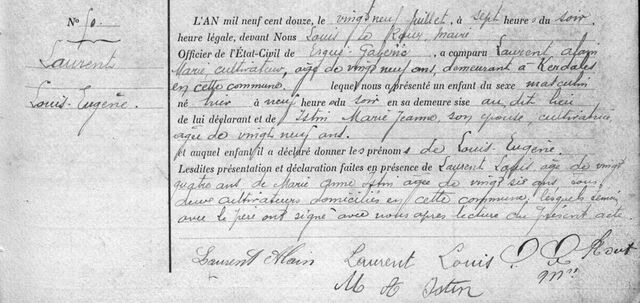 N° 50.
Laurent
Louis-Eugène.
L'AN mil neuf cent douze, le vingt neuf juillet, à sept heures du soir
heure légale, devant Nous Louis Le Roux maire
Officier de l'État-Civil de Ergué-Gabéric, a comparu Laurent Alain
Marie cultivateur, âgé de vingt neuf ans, demeurant à Kerdalès
en cette commune. lequel nous a présenté un enfant du sexe masculin
né hier à neuf heures du soir en sa demeure sise au dit lieu
de lui déclarant et de Istin Marie Jeanne, son épouse, cultivatrice,
âgée de vingt neuf ans.
et auquel enfant il a déclaré donner les prénoms de Louis-Eugène.
Lesdites présentation et déclaration faites en présence de Laurent Louis, âgé de vingt
quatre ans, de Marie Anne Istin âgée de vingt six ans, tous
deux cultivateurs domiciliés en cette commune, lesquels témoins
avec le père ont signé avec nous après lecture du présent acte
Laurent Alain Laurent Louis Roux
M A Istin